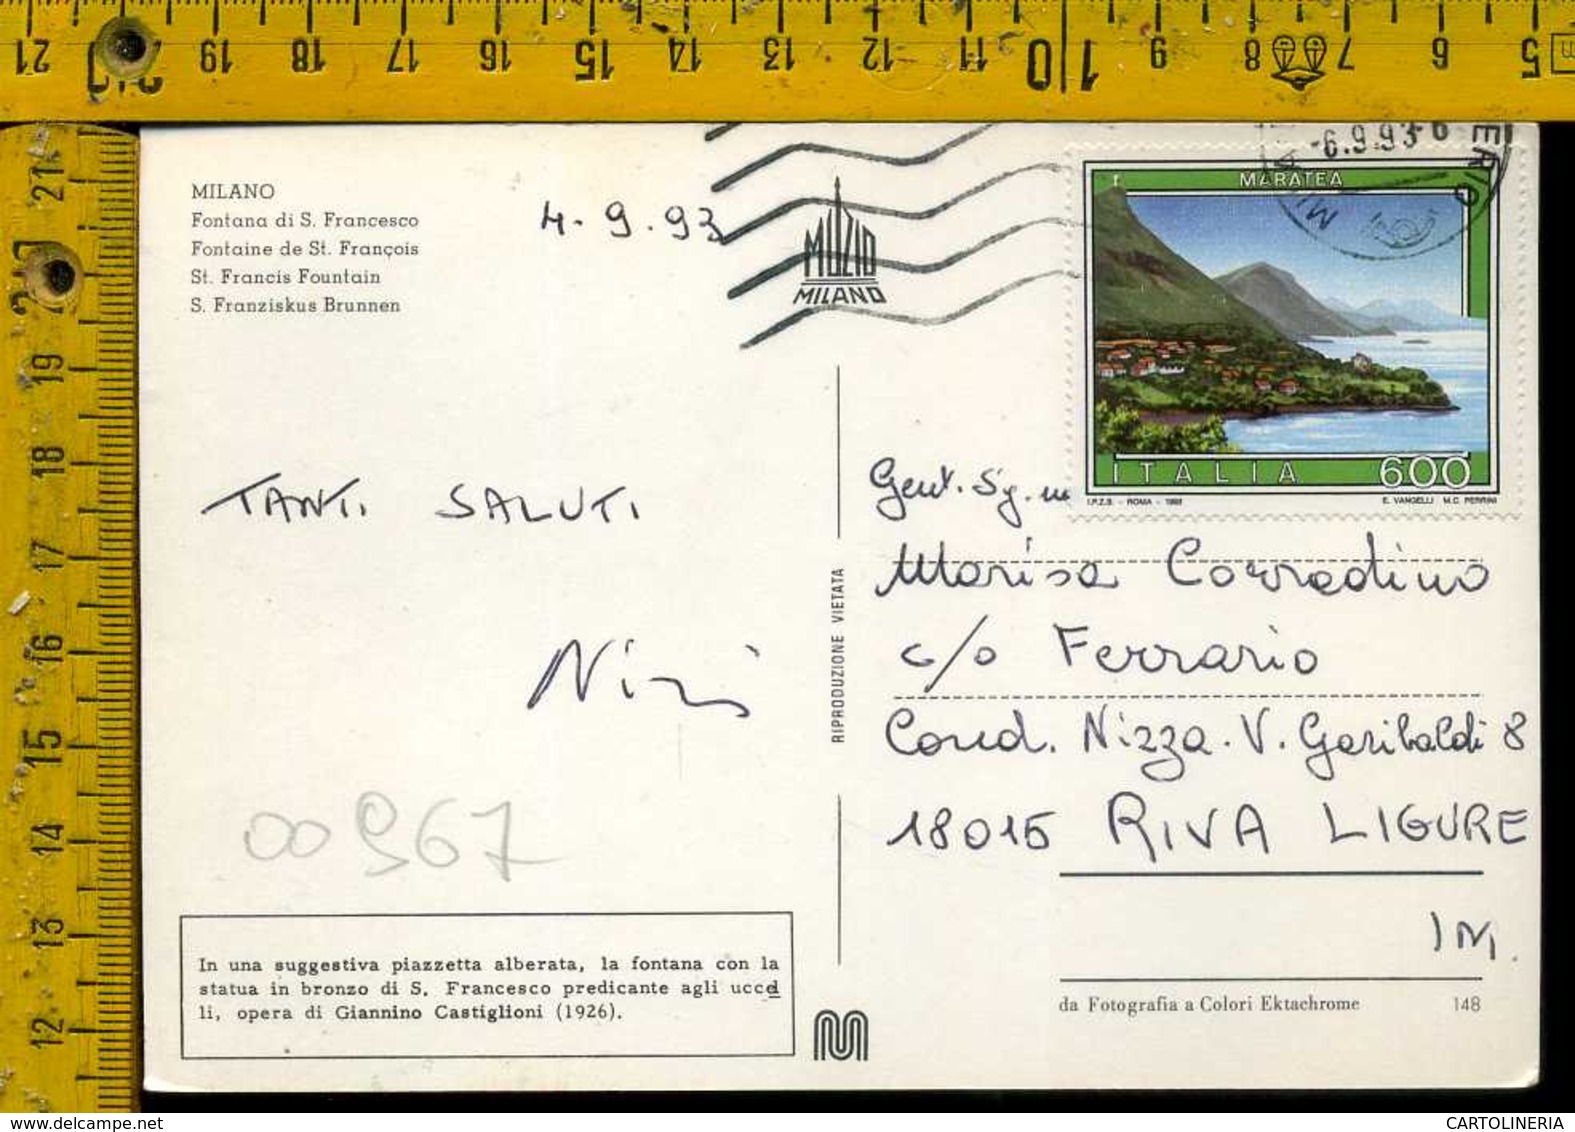 21 20 19 18 17 16 15 14 13 12 11 10 1 9 8 7 6 5 m
21
20
19
18
17
16
15
14
13
12
MILANO
Fontana di S. Francesco
Fontaine de St. François
St. Francis Fountain
S. Franziskus Brunnen
4-9.93
MUZIO
MILANO
-6.9.93-6
MARATEA
ITALIA 600
I.P.Z.S. - ROMA - 1993 E. VANGELLI M.C. PERRINI
TANTI SALUTI
00967
In una suggestiva piazzetta alberata, la fontana con la
statua in bronzo di S. Francesco predicante agli uccel
li, opera di Giannino Castiglioni (1926).
RIPRODUZIONE VIETATA
Gent. Sig.na
Marisa Corradino
c/o Ferrario
Cond. Nizza. V. Garibaldi 8
18015 RIVA LIGURE
IM.
da Fotografia a Colori Ektachrome 148
CARTOLINERIA